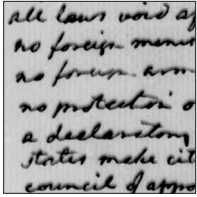 all laws void of
no foreign menus
no foreign arm
no protection o
a declaratory
states make cit
council of appo